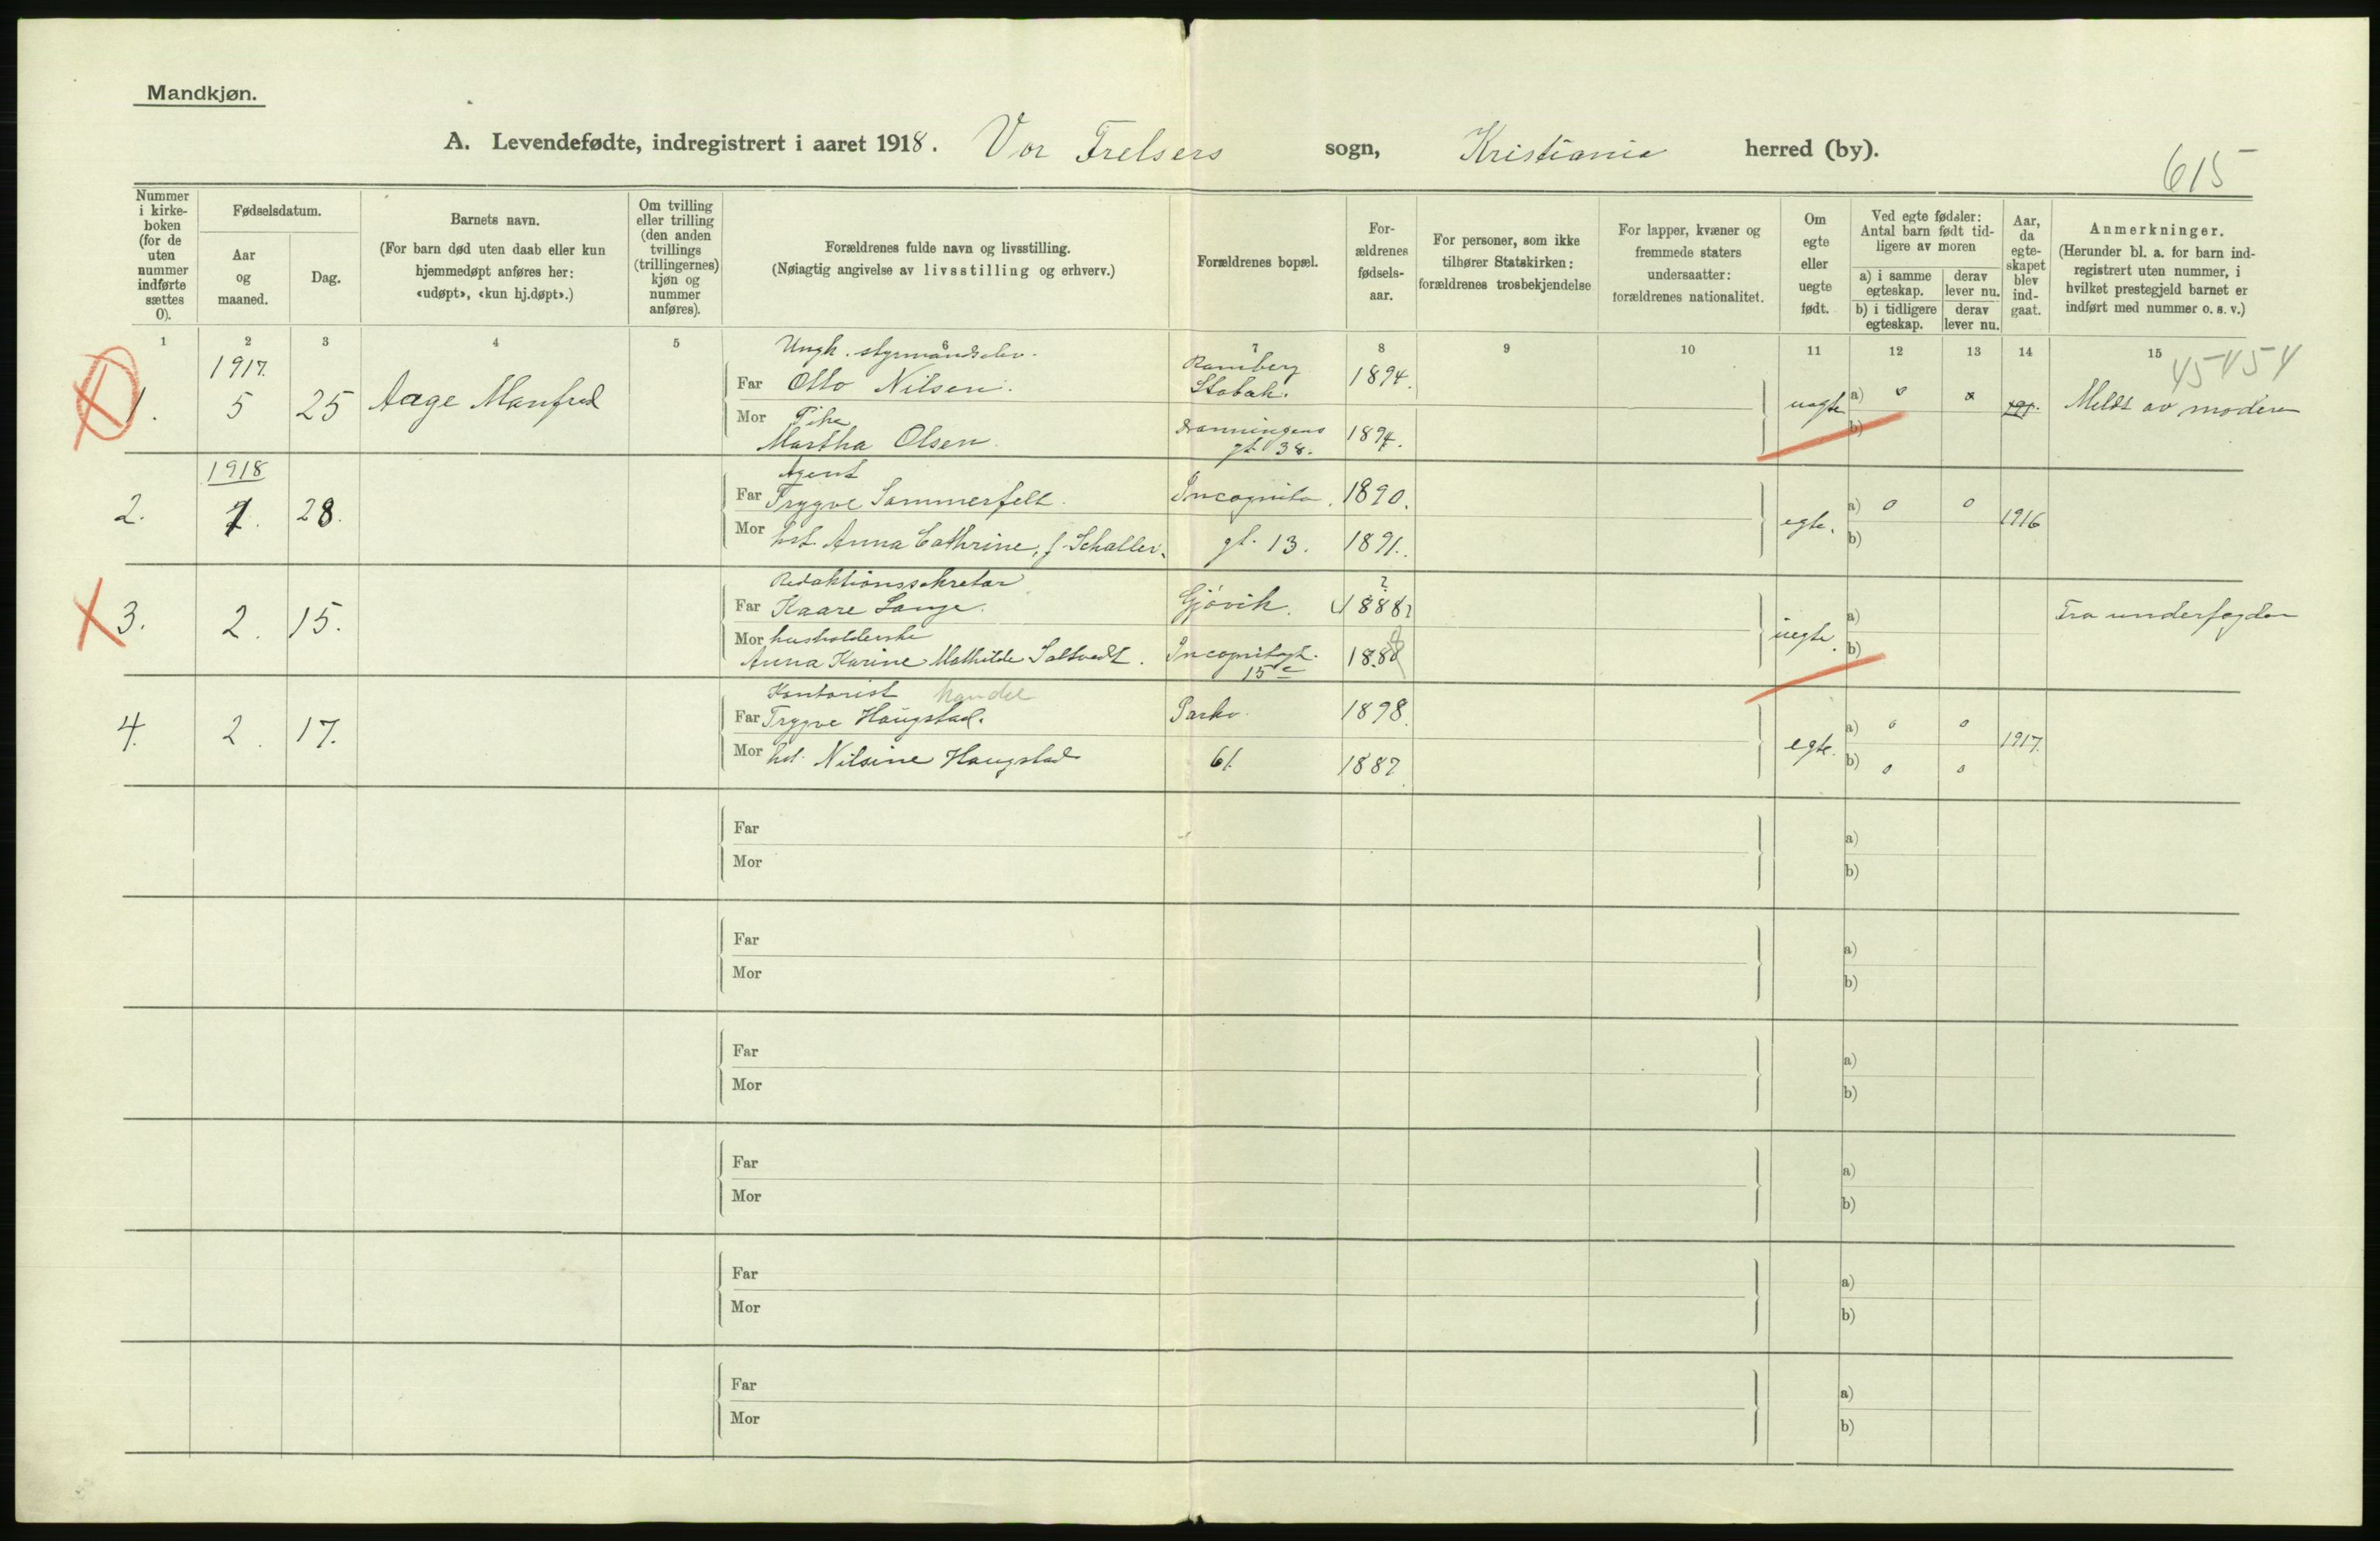 Mandkjøn.
A. Levendefødte, indregistrert i aaret 1918. Vor Frelsers sogn, Kristiania herred (by).
615
Nummer i kirke-boken (for de uten nummer indførte sættes 0).
Fødselsdatum.
Aar og maaned.
Dag.
Barnets navn.
(For barn død uten daab eller kun hjemmedøpt anføres her: «udøpt», «kun hj.døpt».)
Om tvilling eller trilling (den anden tvillings (trillingernes) kjøn og nummer anføres).
Forældrenes fulde navn og livsstilling.
(Nøiagtig angivelse av livsstilling og erhverv.)
Forældrenes bopæl.
For-ældrenes fødsels-aar.
For personer, som ikke tilhører Statskirken: forældrenes trosbekjendelse
For lapper, kvæner og fremmede staters undersaatter: forældrenes nationalitet.
Om egte eller uegte født.
Ved egte fødsler: Antal barn født tid-ligere av moren
a) i samme egteskap.
derav lever nu.
b) i tidligere egteskap.
derav lever nu.
Aar, da egte-skapet blev ind-gaat.
Anmerkninger.
(Herunder bl. a. for barn ind-registrert uten nummer, i hvilket prestegjeld barnet er indført med nummer o. s. v.)
1 2 3 4 5 6 7 8 9 10 11 12 13 14 15
45454
1917.
Ungk. styrmandselev.
1. 5 25 Aage Manfred
Far Otto Nilsen. Ramberg Stabæk. 1894.
uegte a) 0 0 191. Meldt av moderen
Mor Pike
Martha Olsen. Dronningens gt. 38. 1894. b)
1918
Agent
2. 1. 28.
Far Trygve Sommerfelt. Incognito 1890.
egte. a) 0 0 1916
Mor hst. Anna Cathrine, f. Schaller. gt. 13. 1891. b)
Redaktionssekretær
3. 2. 15.
Far Kaare Lange. Gjøvik. 1888 ?
uegte. a) Fra underfogden
Mor husholderske
Anna Karine Mathilde Saltvedt. Incognitogt. 15 c b)
Kontorist handel
4. 2. 17.
Far Trygve Haugstad. Parkv. 1898.
egte. a) 0 0 1917.
Mor hst. Nilsine Haugstad 61. 1887. b) 0 0
Far a)
Mor b)
Far a)
Mor b)
Far a)
Mor b)
Far a)
Mor b)
Far a)
Mor b)
Far a)
Mor b)